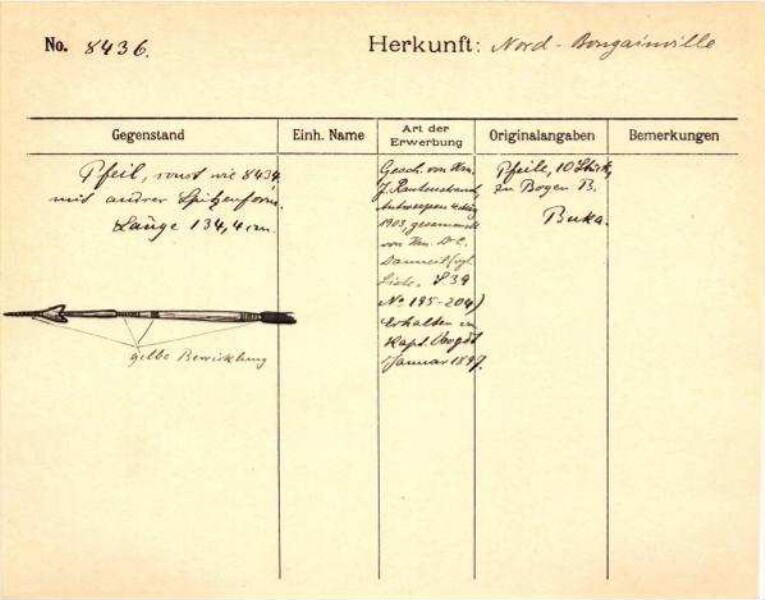 No. 8436.
Herkunft: Nord-Bougainville
Gegenstand
Einh. Name
Art der Erwerbung
Originalangaben
Bemerkungen
Pfeil, sonst wie 8434
mit andrer Spitzenform.
Länge 134,4 cm.
gelbe Bewicklung
Gesch. von Hrn.
J. Rautenstrauch,
Antwerpen
1903, gesammelt
von Hrn. Dr. C.
Danneil (vgl.
Liste. S 39
No 195-204)
Erhalten
Kapt.
Januar 1897.
Pfeile, 10 Stück,
zu Bogen B.
Buka.